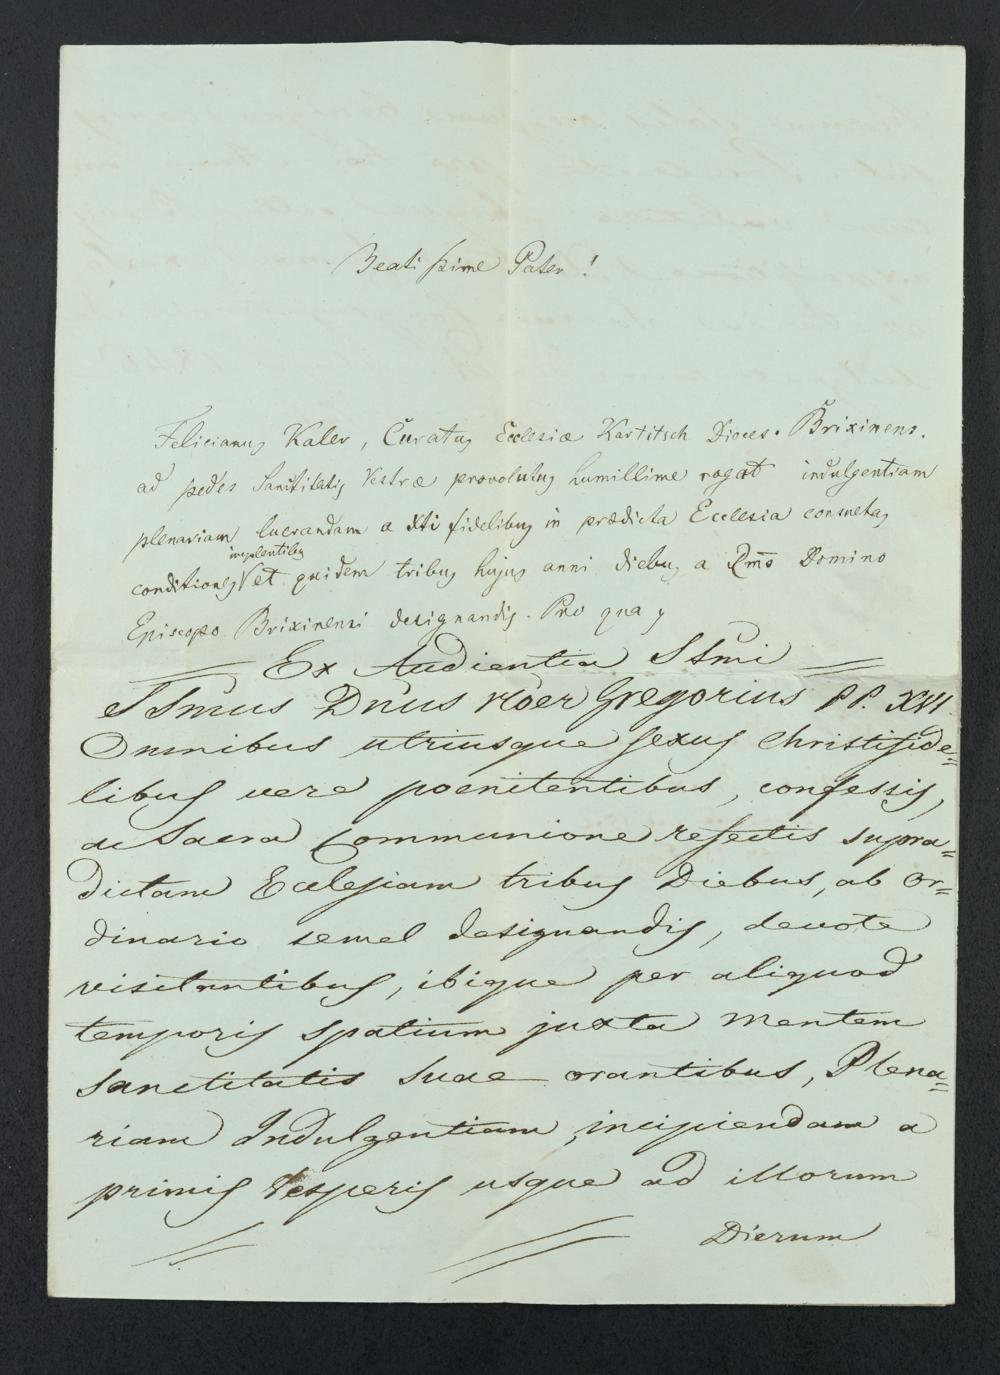 Beatissime Pater!
Felicianus Kaler, Curatus Ecclesiæ Kartitsch Dioces. Brixinens.
ad pedes Sanctitatis Vestræ provolutus humillime rogat indulgentiam
plenariam lucrandam a Xti fidelibus in prædicta Ecclesia consuetas
implentibus
conditiones et quidem tribus hujus anni diebus a Rmo Domino
Episcopo Brixinensi designandis. Pro qua
Ex Audientia SSmi
SSmus Dnus Noster Gregorius PP. XVI
Omnibus utriusque sexus Christifide=
libus vere poenitentibus, confessis,
ac Sacra Communione refectis supra=
dictam Ecclesiam tribus Diebus, ab Or=
dinario semel designandis, devote
visitantibus, ibique per aliquod
temporis spatium juxta mentem
Sanctitatis Suae orantibus, Plena=
riam Indulgentiam, incipiendam a
primis Vesperis usque ad illorum
Dierum